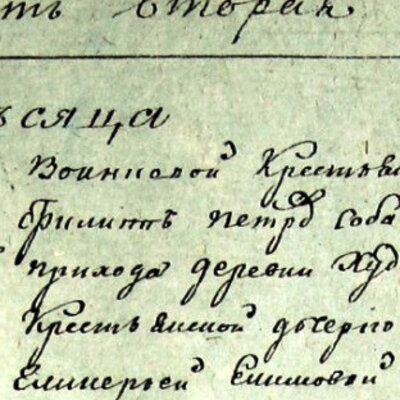 ть вторая
ѣсяца
Воиниовой Крестья
Филиппъ петрд Соба
прихода деревни Худ
Крестьянской дочерїю
Гликерьей Екимовой